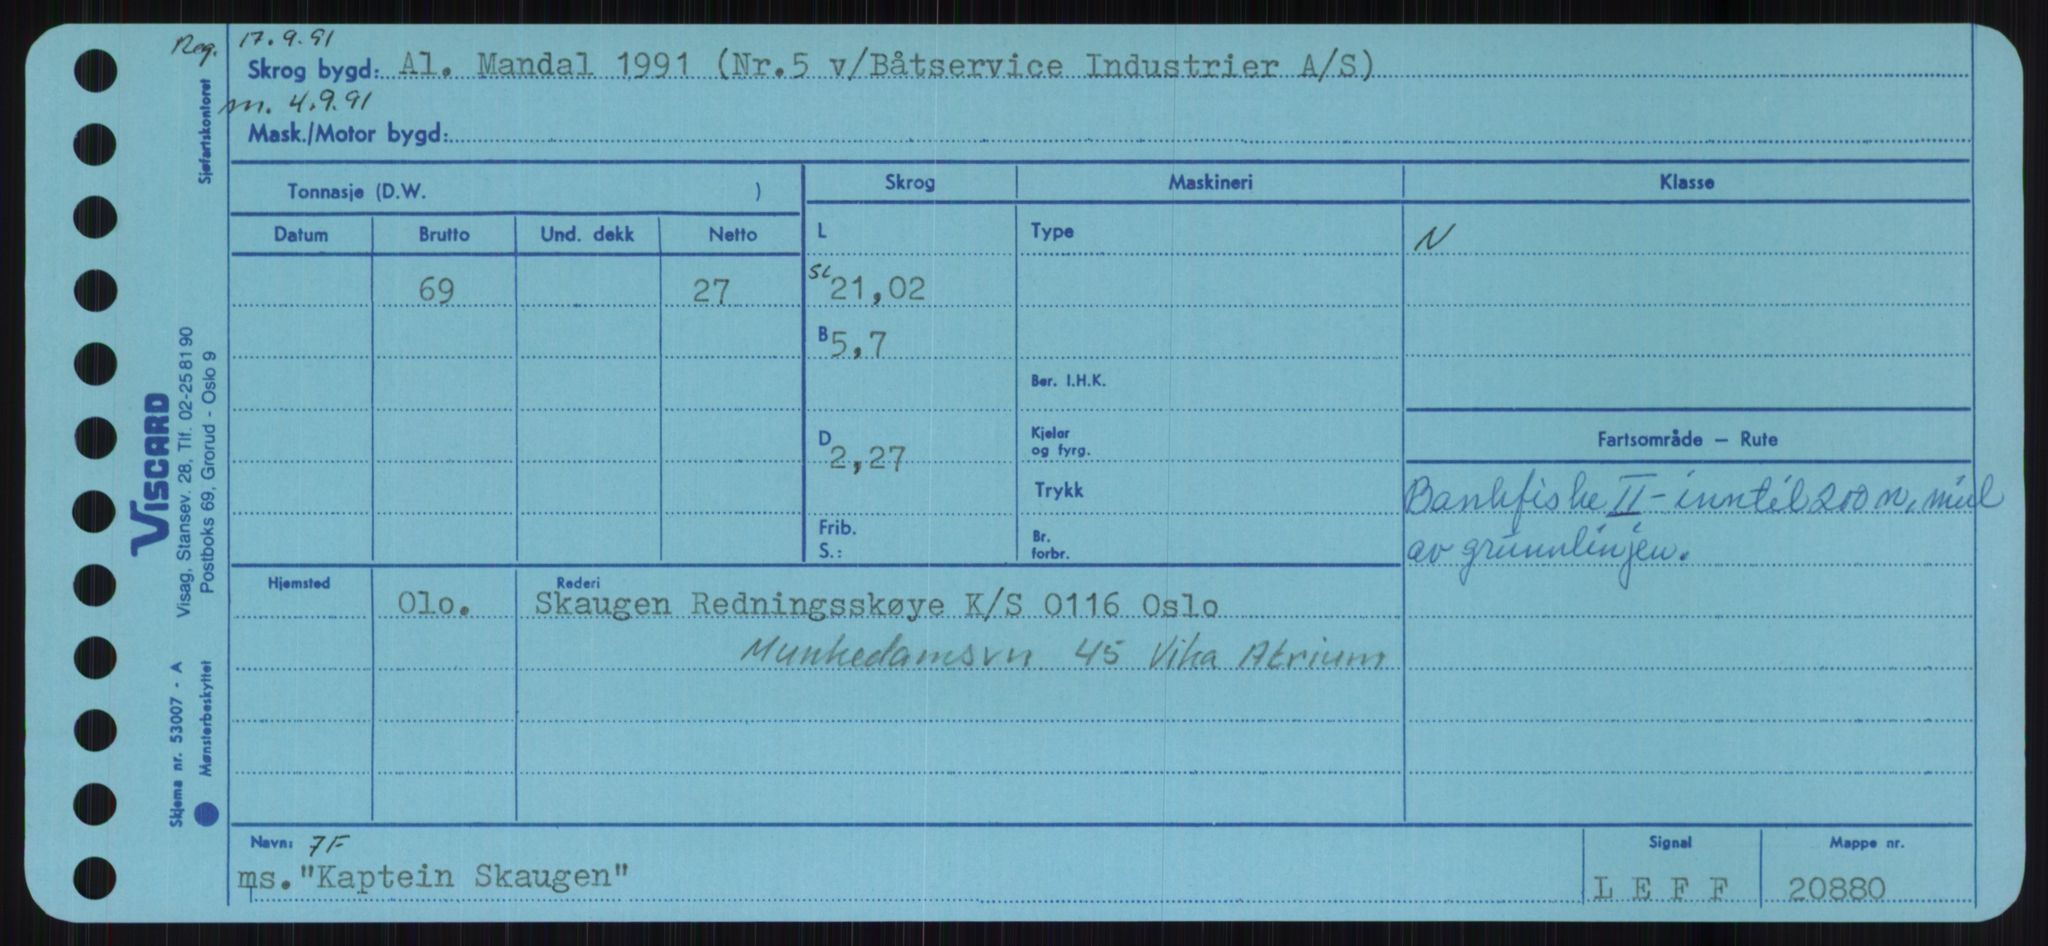 Reg. 17.9.91
Skrog bygd: Al. Mandal 1991 (Nr.5 v/Båtservice Industrier A/S)
m. 4.9.91
Mask./Motor bygd:
Sjøfartskontoret
Tonnasje (D.W. )
Skrog Maskineri Klasse
Datum Brutto Und. dekk Netto
L Type N
69 27 SL 21,02
B 5,7
Ber. I.H.K.
D 2,27
Kjelar
og fyrg.
Trykk
Frib.
S.:
Br.
forbr.
Fartsområde — Rute
Bankfiske II - inntil 200 n. mil
av grunnlinjen.
Hjemsted Rederi
Olo. Skaugen Redningsskøye K/S 0116 Oslo
Munkedamsvn 45 Vika Atrium
Navn: 7F
ms. "Kaptein Skaugen"
Signal Mappe nr.
L E F F 20880
VISCARD
Visag, Stansev. 28, Tlf. 02-25 81 90
Postboks 69, Grorud - Oslo 9
Skjema nr. 53007 - A
Mønsterbeskyttet